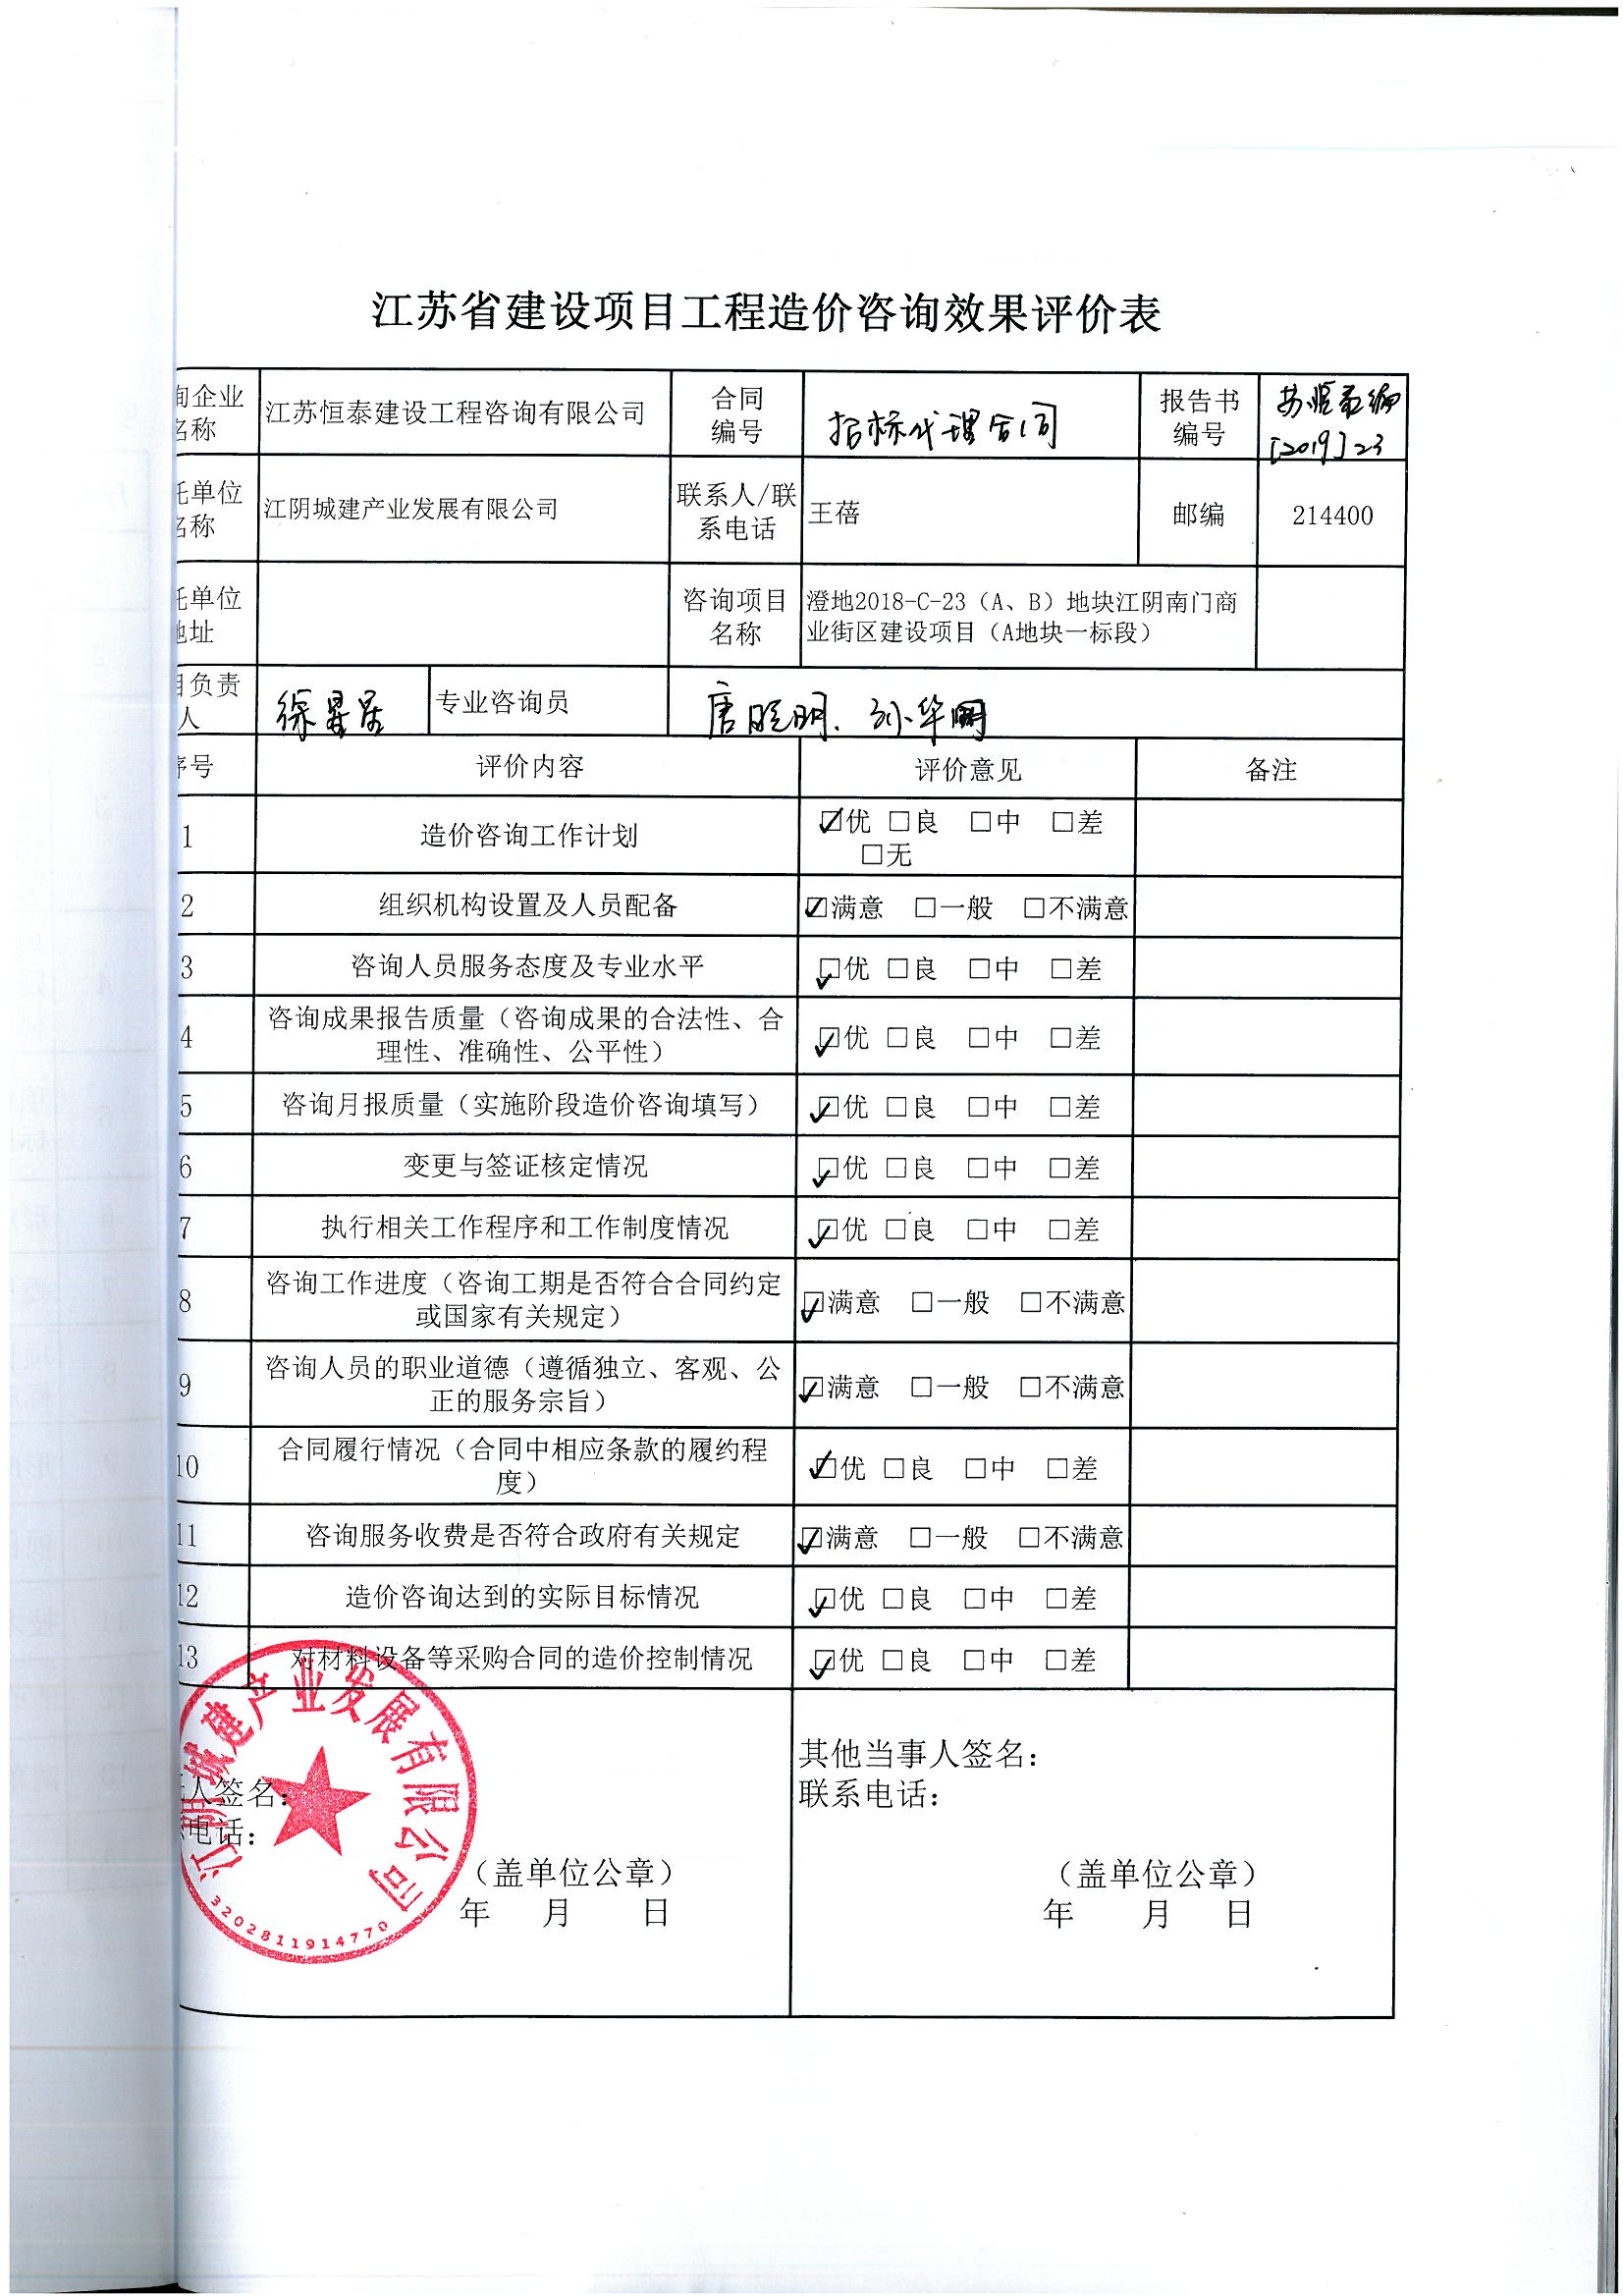 江苏省建设项目工程造价咨询效果评价表
询企业
名称
江苏恒泰建设工程咨询有限公司
合同
编号
招标代理合同
报告书
编号
[2019]23
托单位
名称
江阴城建产业发展有限公司
联系人/联
系电话
王蓓
邮编
214400
托单位
地址
咨询项目
名称
澄地2018-C-23（A、B）地块江阴南门商
业街区建设项目（A地块一标段）
目负责
人
专业咨询员
唐晓明、孙华
序号
评价内容
评价意见
备注
1
造价咨询工作计划
☑优 □良 □中 □差
□无
2
组织机构设置及人员配备
☑满意 □一般 □不满意
3
咨询人员服务态度及专业水平
☑优 □良 □中 □差
4
咨询成果报告质量（咨询成果的合法性、合
理性、准确性、公平性）
☑优 □良 □中 □差
5
咨询月报质量（实施阶段造价咨询填写）
☑优 □良 □中 □差
6
变更与签证核定情况
☑优 □良 □中 □差
7
执行相关工作程序和工作制度情况
☑优 □良 □中 □差
8
咨询工作进度（咨询工期是否符合合同约定
或国家有关规定）
☑满意 □一般 □不满意
9
咨询人员的职业道德（遵循独立、客观、公
正的服务宗旨）
☑满意 □一般 □不满意
10
合同履行情况（合同中相应条款的履约程
度）
☑优 □良 □中 □差
11
咨询服务收费是否符合政府有关规定
☑满意 □一般 □不满意
12
造价咨询达到的实际目标情况
☑优 □良 □中 □差
13
对材料设备等采购合同的造价控制情况
☑优 □良 □中 □差
人签名：
电话：
（盖单位公章）
年 月 日
江阴城建产业发展有限公司
3202811914770
其他当事人签名：
联系电话：
（盖单位公章）
年 月 日